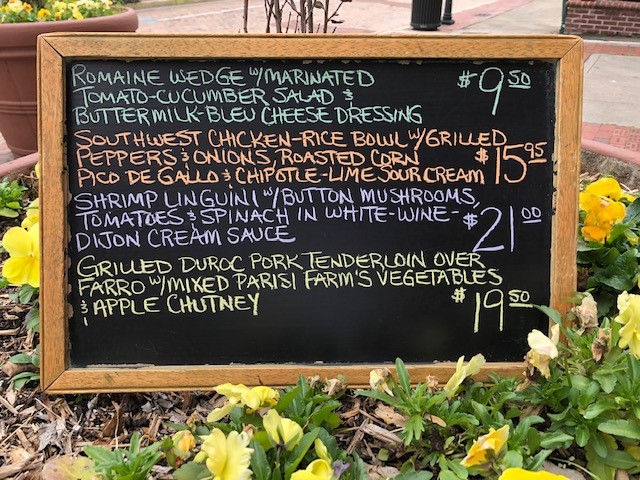 ROMAINE WEDGE W/MARINATED $9.50
TOMATO-CUCUMBER SALAD &
BUTTERMILK-BLEU CHEESE DRESSING
SOUTHWEST CHICKEN-RICE BOWL W/GRILLED
PEPPERS & ONIONS, ROASTED CORN $15.95
PICO DE GALLO & CHIPOTLE-LIME SOUR CREAM
SHRIMP LINGUINI W/BUTTON MUSHROOMS,
TOMATOES & SPINACH IN WHITE-WINE- $21.00
DIJON CREAM SAUCE
GRILLED DUROC PORK TENDERLOIN OVER
FARRO W/MIXED PARISI FARM'S VEGETABLES
& APPLE CHUTNEY $19.50